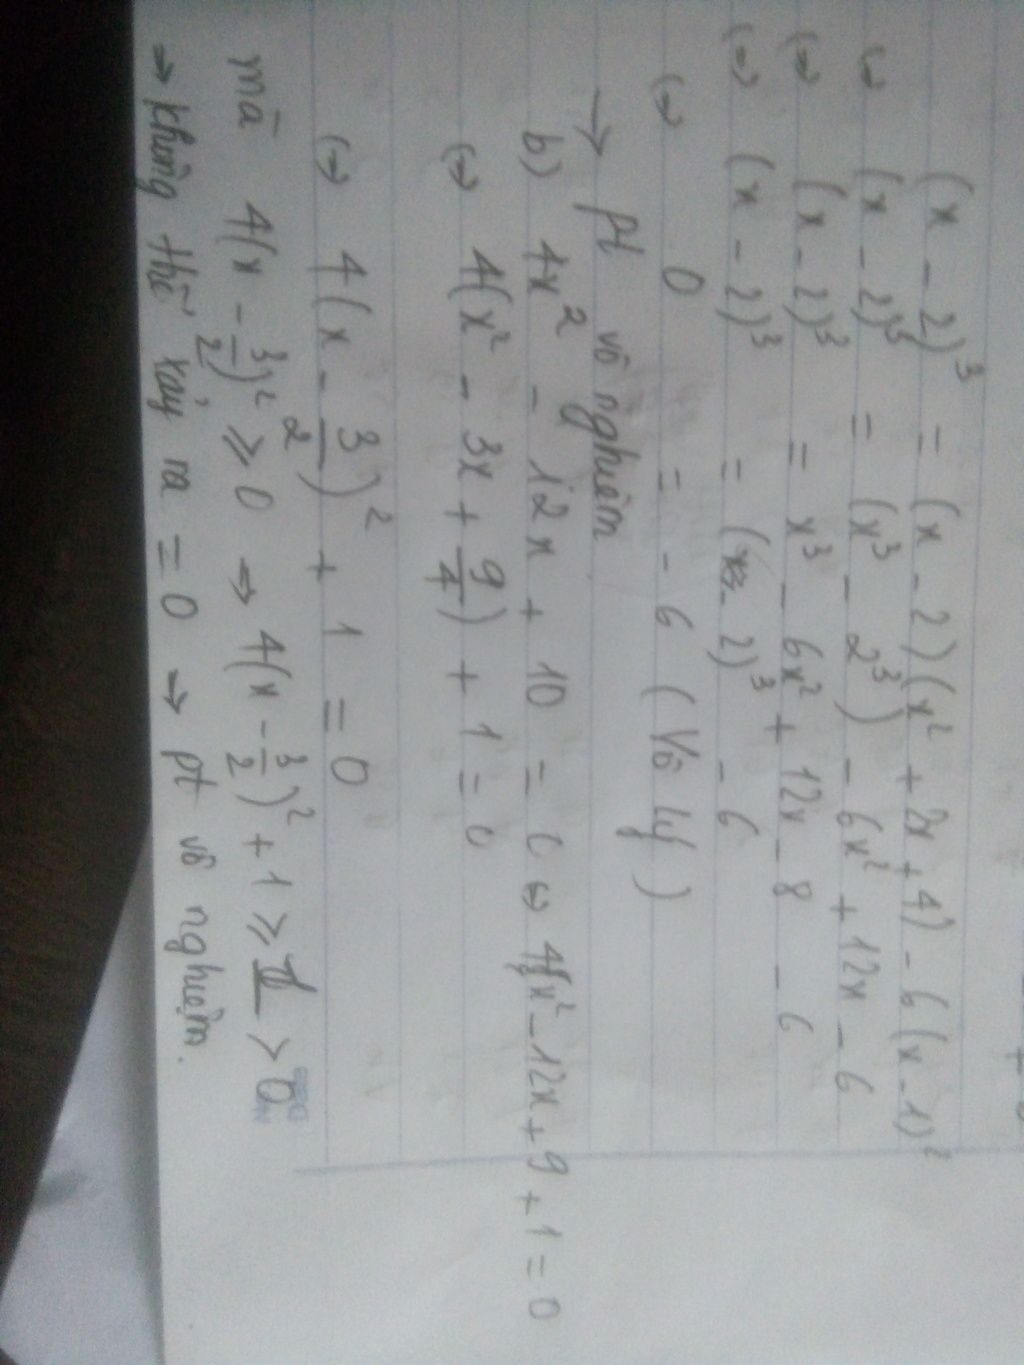 (x - 2)³ = (x - 2)(x² + 2x + 4) - 6(x - 1)²
(⇒) (x - 2)³ = (x³ - 2³) - 6x² + 12x - 6
(⇒) (x - 2)³ = x³ - 6x² + 12x - 8 - 6
(⇒) (x - 2)³ = (x - 2)³ - 6
(⇒) 0 = - 6 (Vô lý)
→ pt vô nghiệm
b) 4x² - 12x + 10 = 0 ⇔ 4x² - 12x + 9 + 1 = 0
(⇒) 4(x² - 3x + 9/4) + 1 = 0
(⇒) 4(x - 3/2)² + 1 = 0
mà 4(x - 3/2)² ≥ 0 ⇒ 4(x - 3/2)² + 1 ≥ 1 > 0
⇒ không thể xảy ra = 0 → pt vô nghiệm.